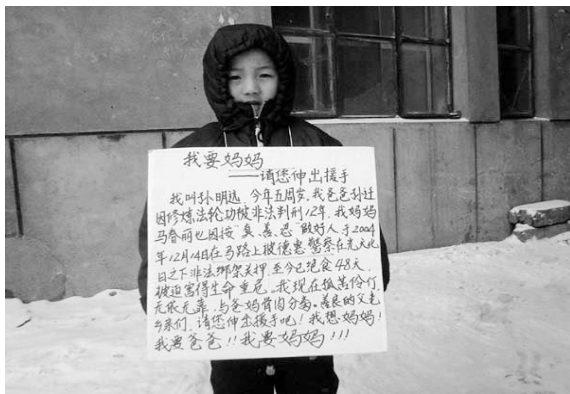 我要妈妈
——请您伸出援手
我叫孙明远，今年五周岁，我爸爸孙迁
因修炼法轮功被非法判刑12年，我妈妈
马春丽也因按"真、善、忍"做好人于2004
年12月14日在马路上被德惠警察在光天化
日之下非法绑架关押，至今已绝食48天，
被迫害得生命垂危。我现在孤苦伶仃，
无依无靠，与爸妈骨肉分离。善良的父老
乡亲们，请您伸出援手吧！我想妈妈！
我要爸爸！！我要妈妈！！！